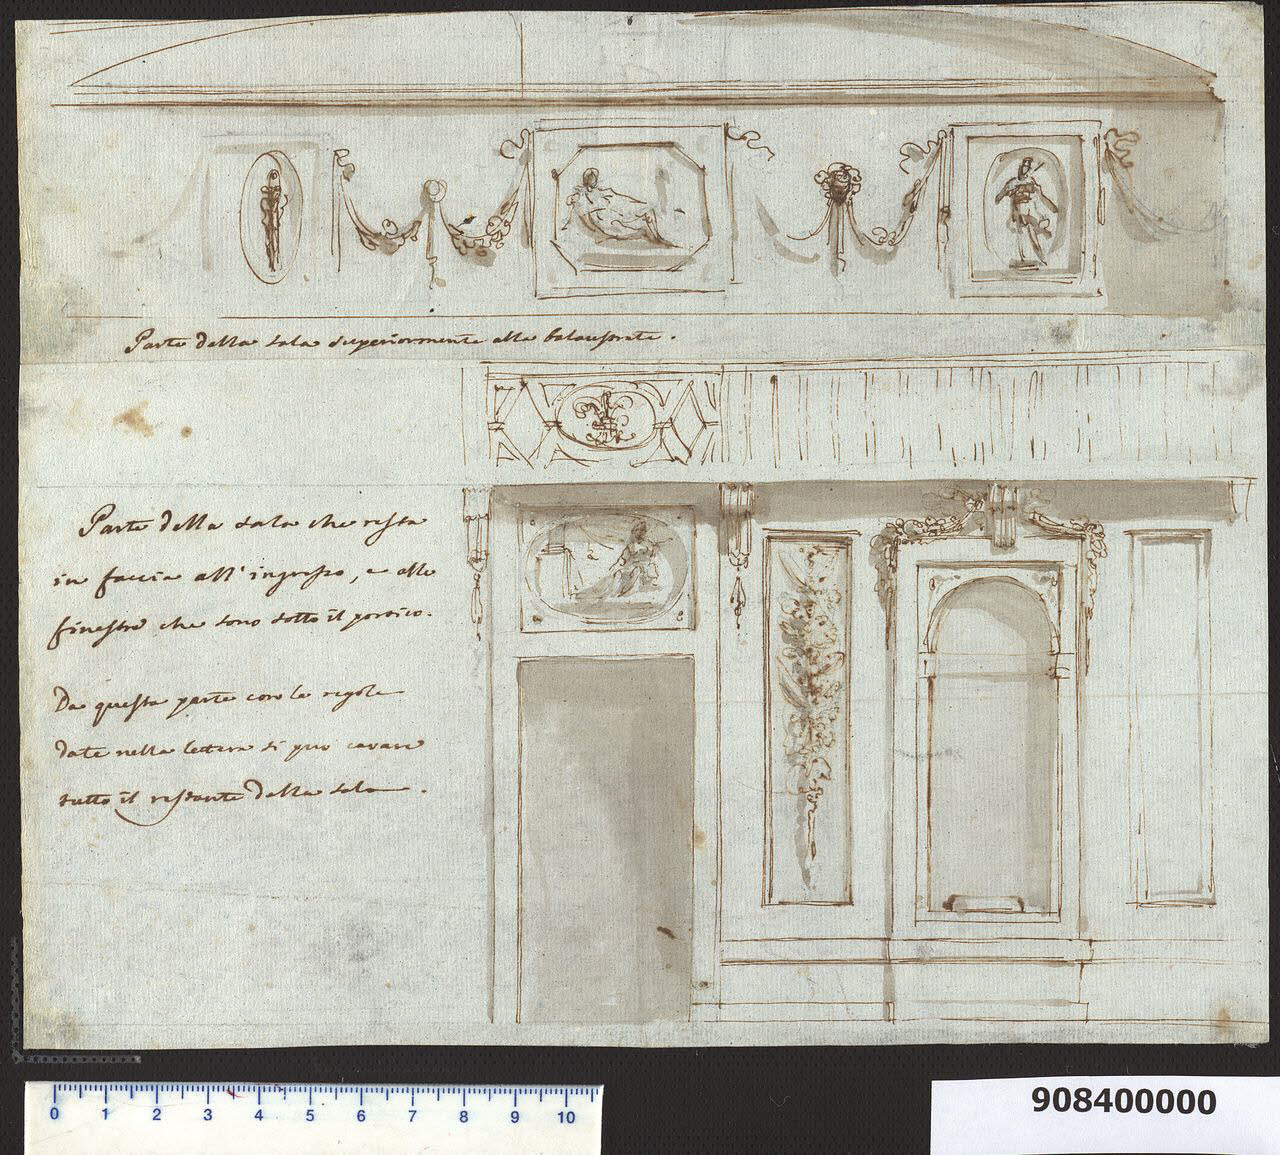 Parte della sala superiormente alla balaustrata.
Parte della sala che resta
in faccia all'ingresso, e alle
finestre che sono sotto il portico.
Da questa parte con le regole
date nella lettera si può cavare
tutto il restante della sala.
0 1 2 3 4 5 6 7 8 9 10
908400000